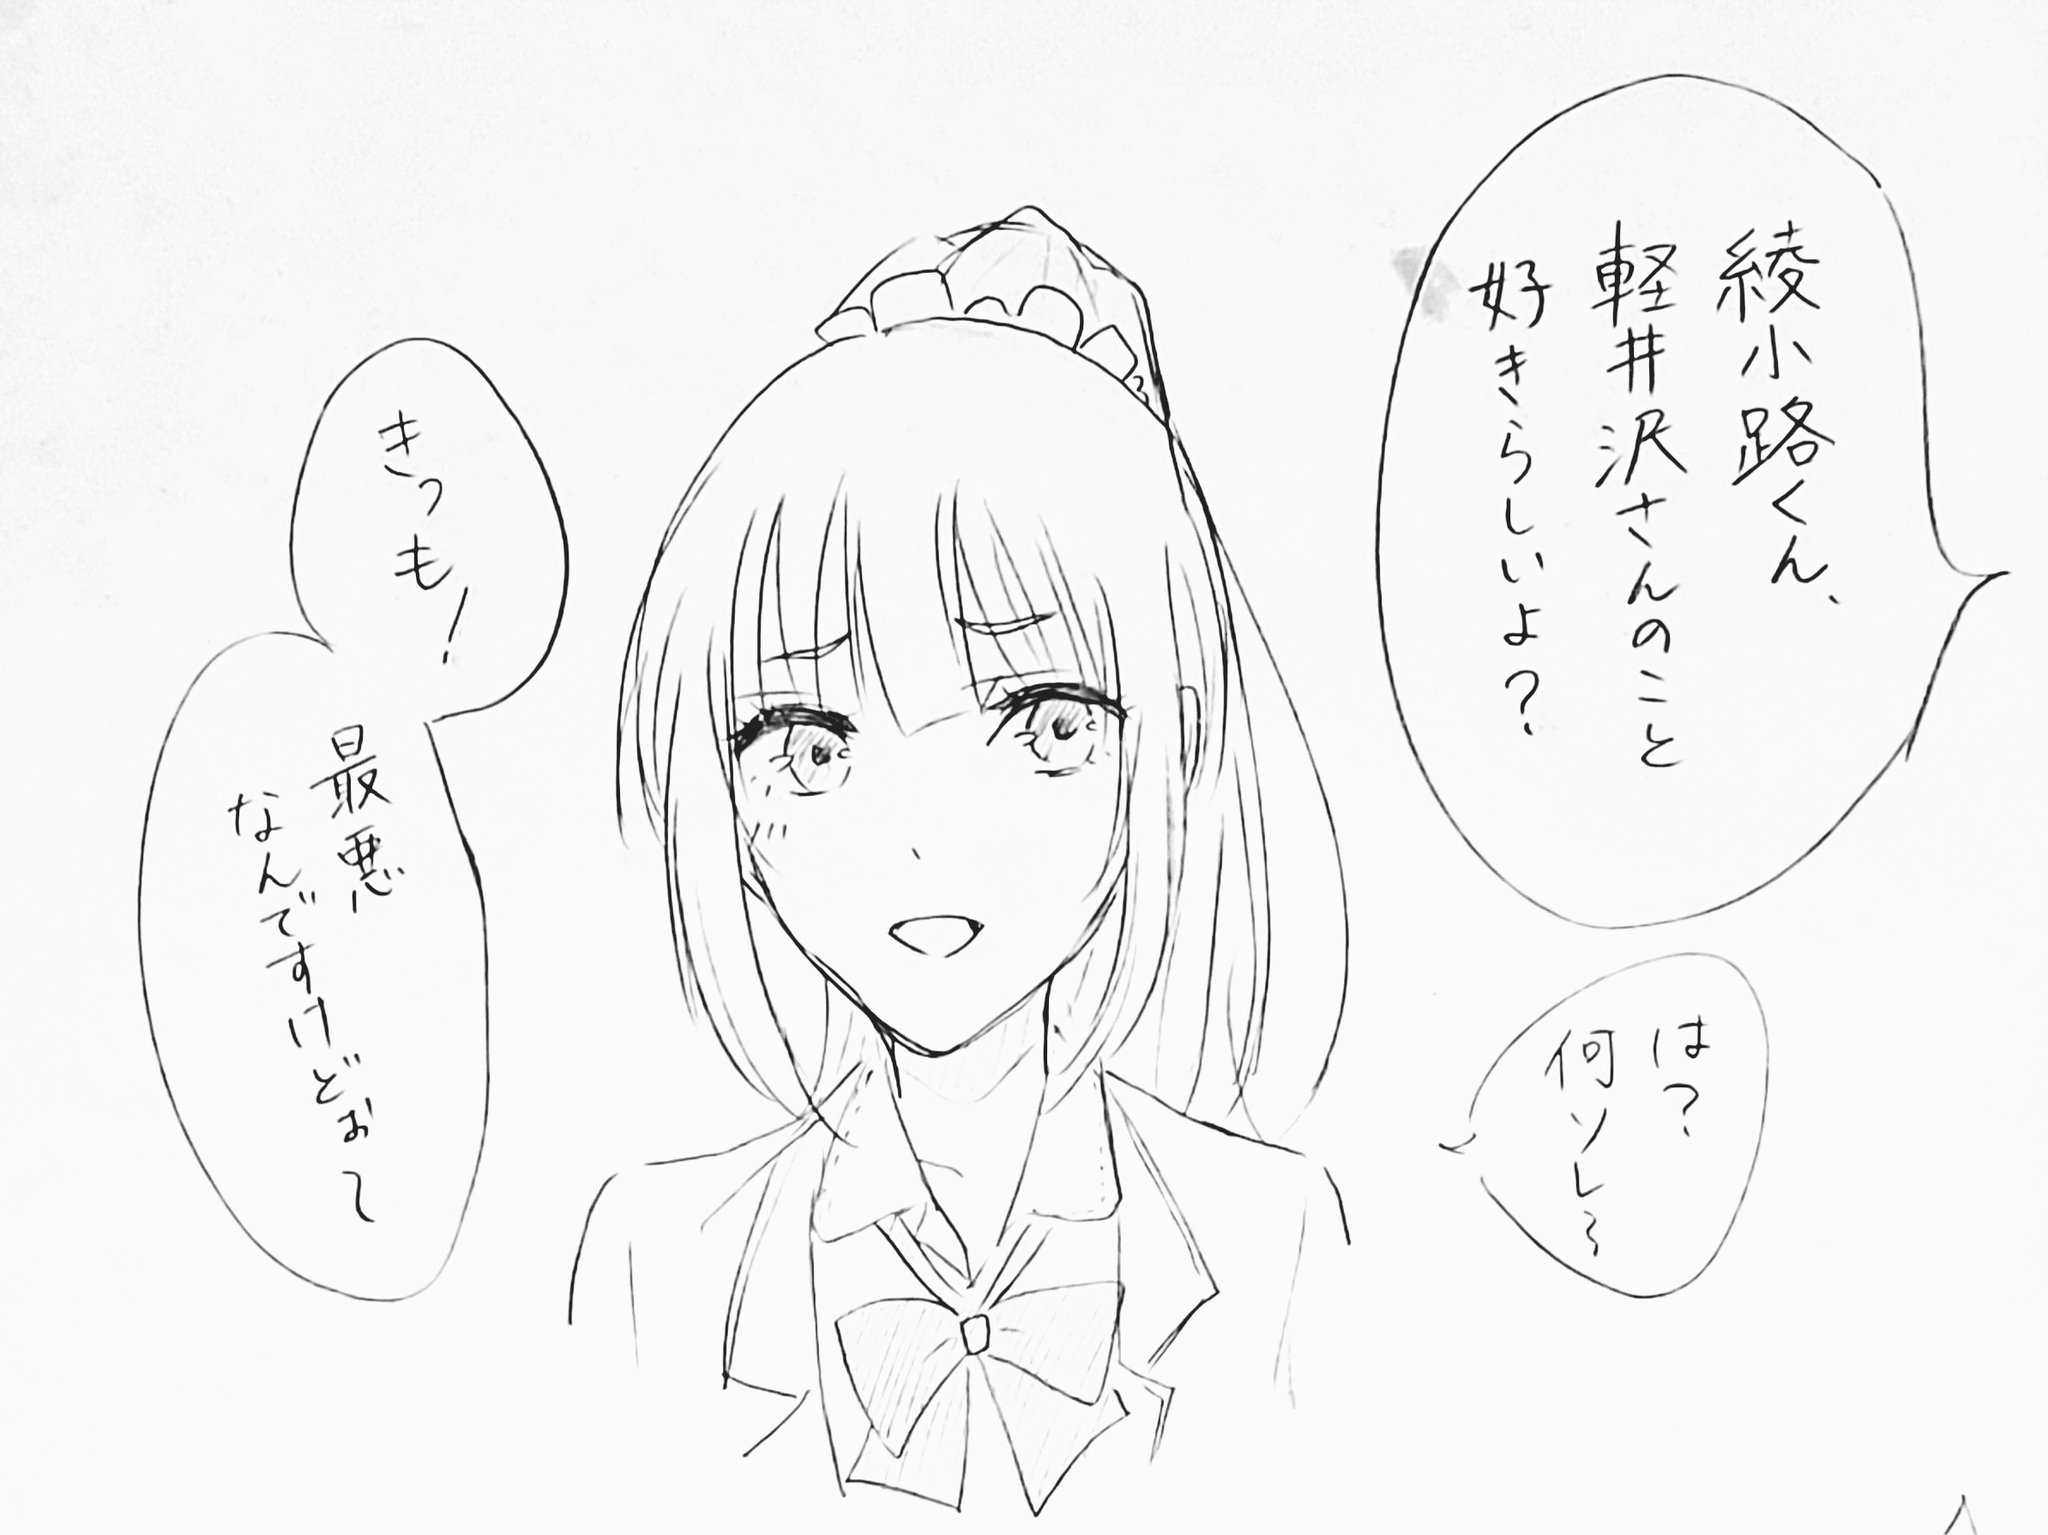 綾小路くん、
軽井沢さんのこと
好きらしいよ?
は?
何ソレ〜
きっも!
最悪
なんですけどぉ〜